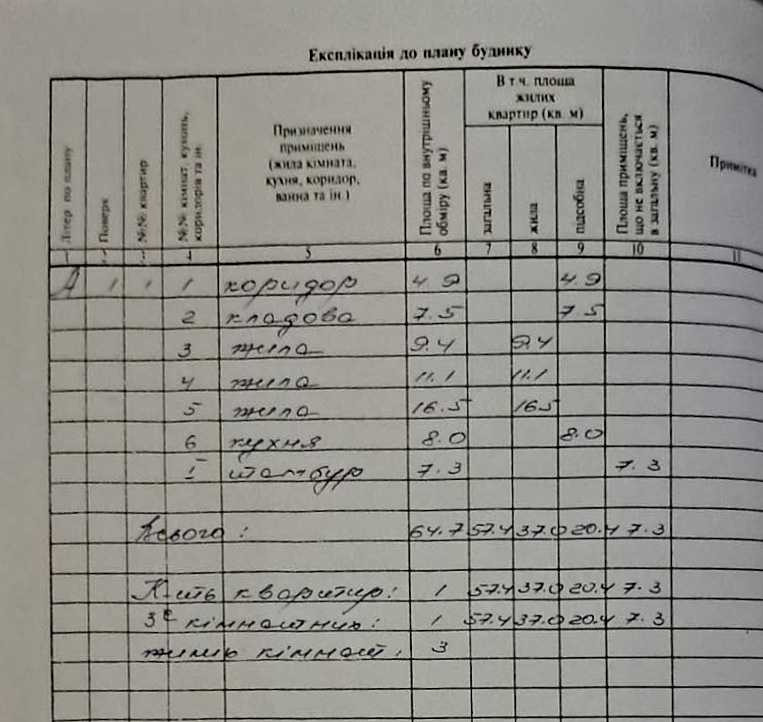 Експлікація до плану будинку
Літер по плану
Поверх
№№ квартир
№№ кімнат, кухонь, коридорів та ін.
Призначення
приміщень
(жила кімната,
кухня, коридор,
ванна та ін.)
Площа по внутрішньому обміру (кв. м)
В т.ч. площа
жилих
квартир (кв. м)
загальна
жила
підсобна
Площа приміщень, що не включається в загальну (кв. м)
Примітка
1 2 3 4 5 6 7 8 9 10 11
А 1 1 1 коридор 4.9 4.9
2 кладова 7.5 7.5
3 жила 9.4 9.4
4 жила 11.1 11.1
5 жила 16.5 16.5
6 кухня 8.0 8.0
I тамбур 7.3 7.3
Всього: 64.7 57.4 37.0 20.4 7.3
К-ть квартир: 1 57.4 37.0 20.4 7.3
3х кімнатних: 1 57.4 37.0 20.4 7.3
жилих кімнат: 3